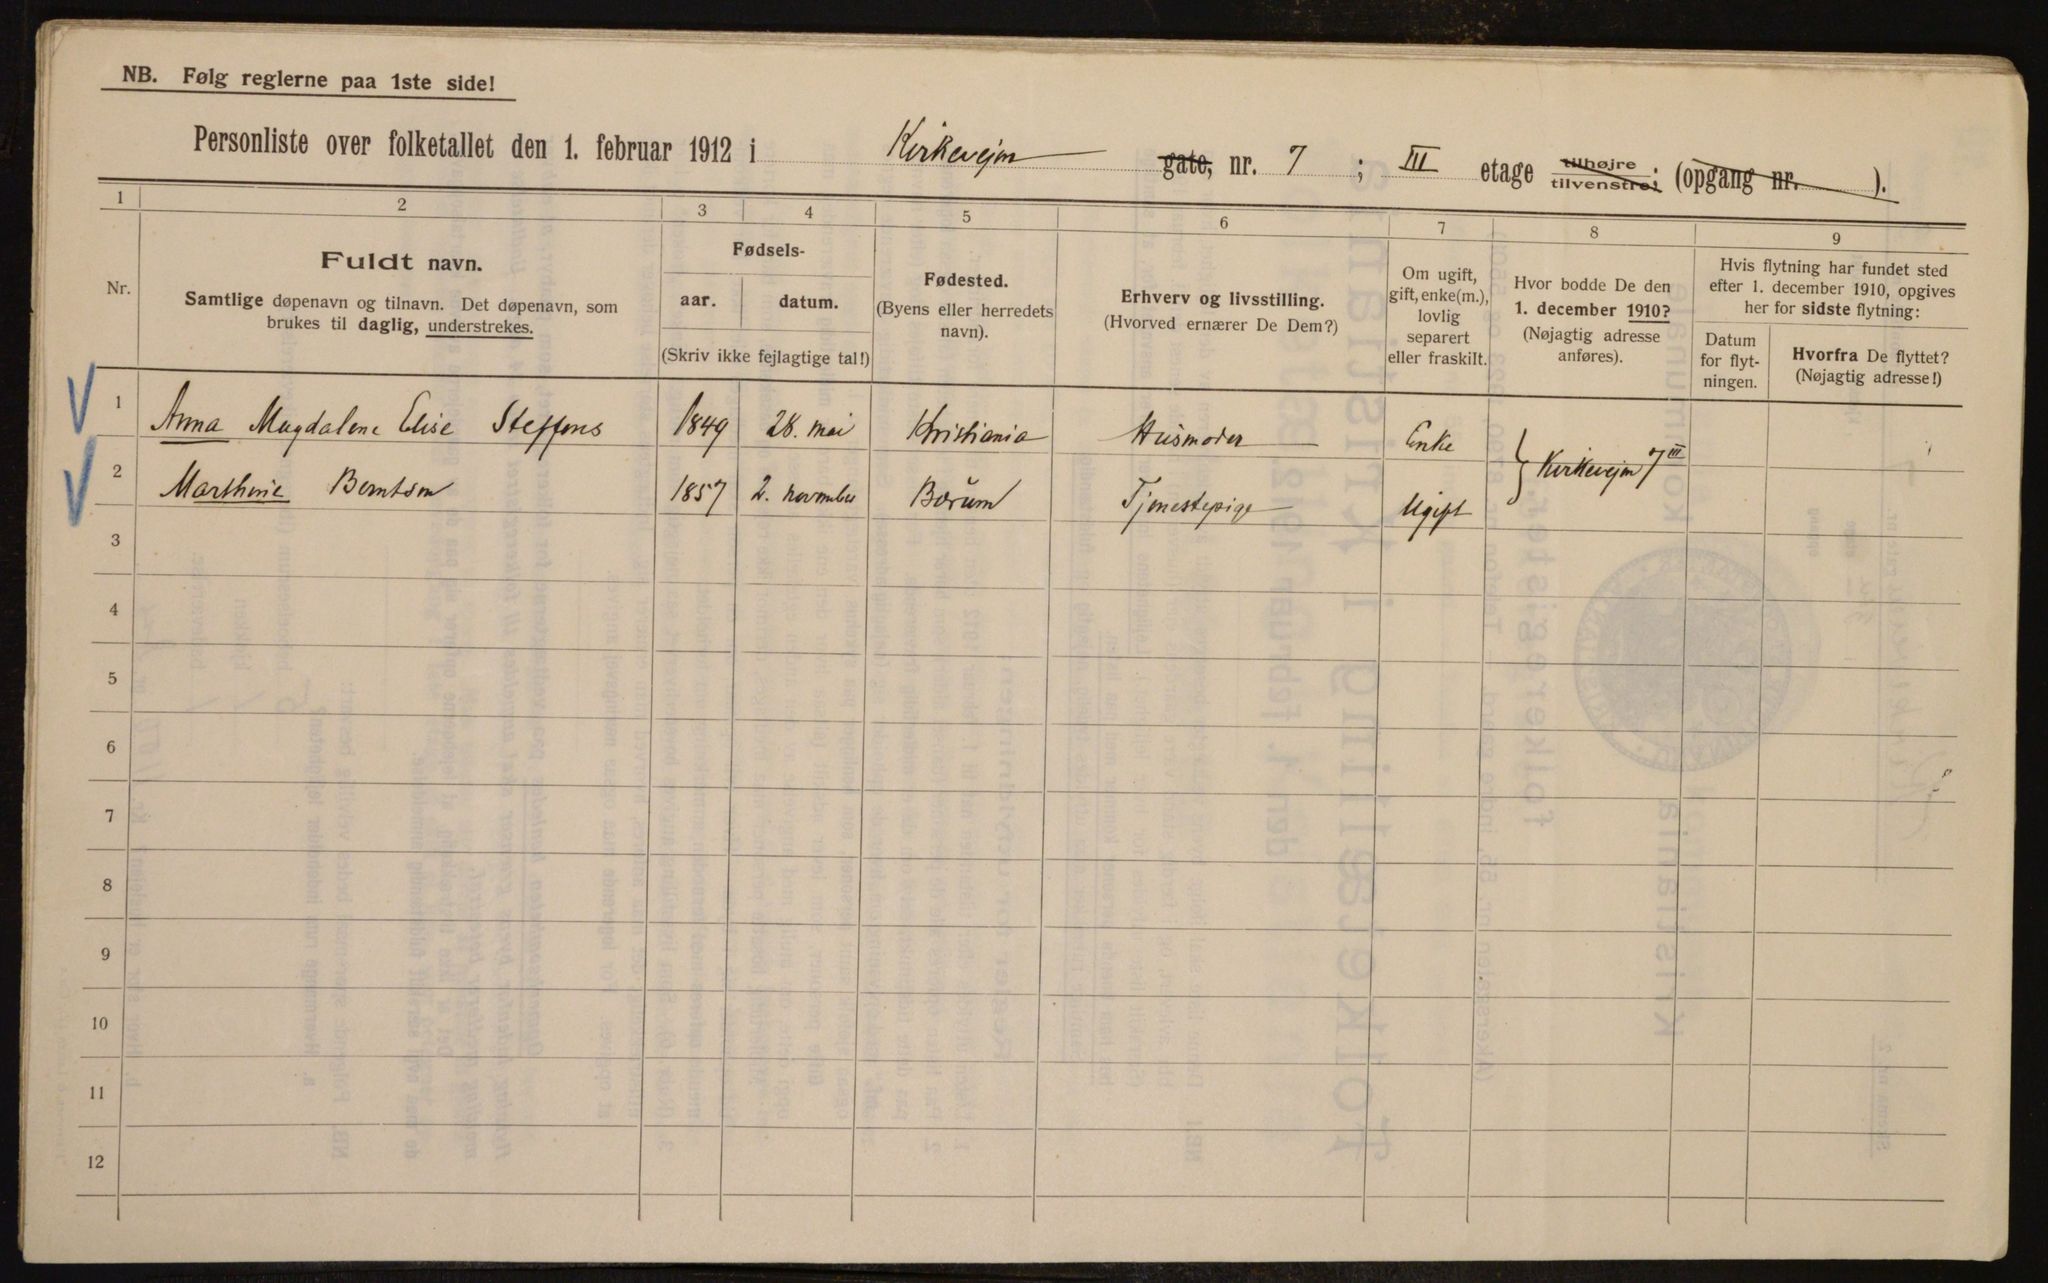 NB. Følg reglerne paa 1ste side!
Personliste over folketallet den 1. februar 1912 i Kirkevejen gate, nr. 7; III etage tilhøjre tilvenstre; (opgang nr. ).
1 2 3 4 5 6 7 8 9
Nr.
Fuldt navn.
Samtlige døpenavn og tilnavn. Det døpenavn, som
brukes til daglig, understrekes.
Fødsels-
aar. datum.
(Skriv ikke fejlagtige tal!)
Fødested.
(Byens eller herredets
navn).
Erhverv og livsstilling.
(Hvorved ernærer De Dem?)
Om ugift,
gift, enke(m.),
lovlig
separert
eller fraskilt.
Hvor bodde De den
1. december 1910?
(Nøjagtig adresse
anføres).
Hvis flytning har fundet sted
efter 1. december 1910, opgives
her for sidste flytning:
Datum
for flyt-
ningen.
Hvorfra De flyttet?
(Nøjagtig adresse!)
1 Anna Magdalene Elise Steffens 1849 28. mai Kristiania Husmoder Enke
Kirkevejen 7 III
2 Marthine Berntsen 1857 2. november Bærum Tjenestepige Ugift
3
4
5
6
7
8
9
10
11
12